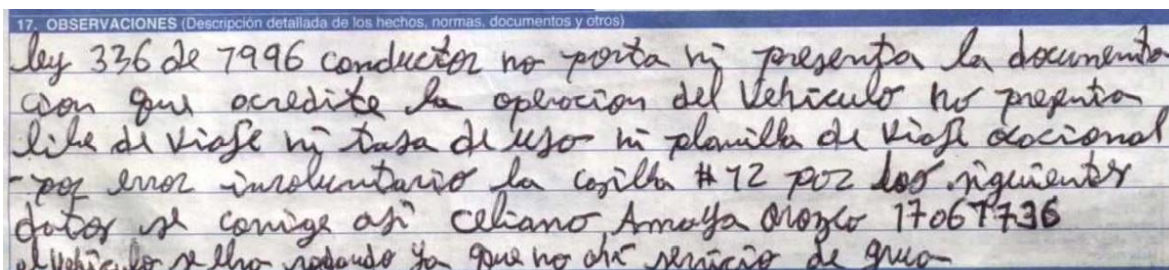 17. OBSERVACIONES (Descripción detallada de los hechos, normas, documentos y otros)
ley 336 de 1996 conductor no porta ni presenta la documenta
cion que acredite la operacion del vehiculo no presenta
de viaje ni tasa de uso ni planilla de viaje ocacional
- por error involuntario la casilla #12 por los siguientes
datos se corrige asi Celiano Amaya Orozco 17067736
el vehiculo se lleva rodando ya que no ahi servicio de grua